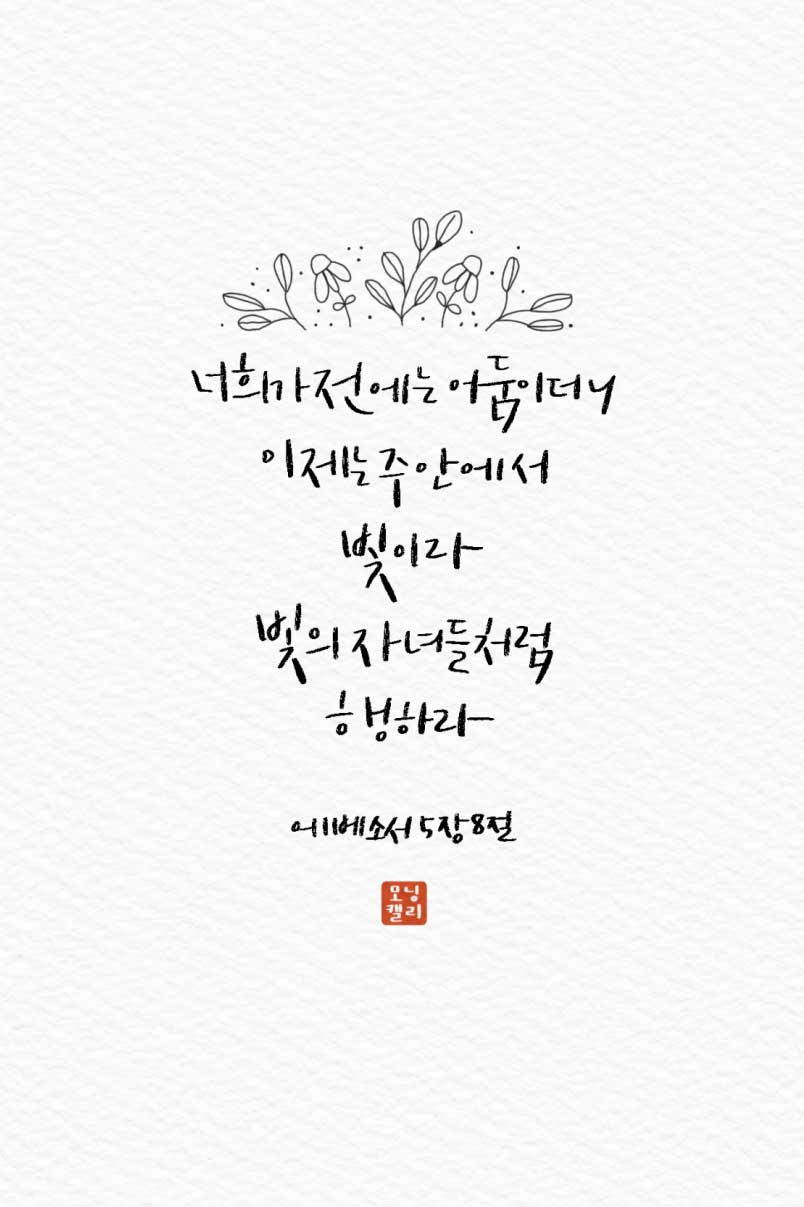 너희가 전에는 어둠이더니
이제는 주 안에서
빛이라
빛의 자녀들처럼
행하라
에베소서 5장 8절
모닝
캘리